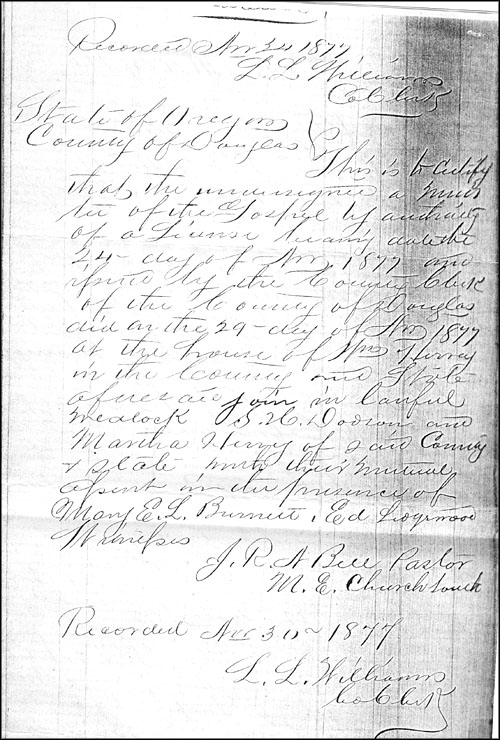 Recorded Nov 24 1877
L. L. Williams
Co Clerk
State of Oregon
County of Douglas
This is to certify
that the undersigned a Minis
ter of the Gospel by authority
of a License bearing date the
24 day of Nov 1877 and
issued by the County Clerk
of the County of Douglas
did on the 29 day of Nov 1877
at the house of Wm Henry
in the County and State
aforesaid join in lawful
Wedlock S. H. Dodson and
Martha Henry of said County
& state with their mutual
assent in the presence of
Mary E. L. Burnett, Ed
Witnesses
J. R. N Bell Pastor
M. E. Church South
Recorded Nov 30 1877
L. L. Williams
Co Clerk